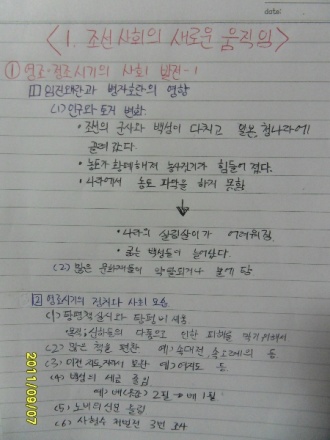 date:
<1. 조선 사회의 새로운 움직임>
① 영조·정조시기의 사회 발전-1
1 임진왜란과 병자호란의 영향
(1) 인구와 토지 변화
• 조선의 군사와 백성이 다치고 일본, 청나라에
끌려갔다.
• 농토가 황폐해져 농사짓기가 힘들어 졌다.
• 나라에서 농토 파악을 하지 못함
↓
• 나라의 살림살이가 어려워짐
• 굶는 백성들이 늘어났다.
(2) 많은 문화재들이 약탈되거나 불에 탐
2 영조시기의 정치와 사회 모습
(1) 탕평책 실시와 탕평비 세움
목적: 신하들의 다툼으로 인한 피해를 막기위해서
(2) 많은 책을 편찬 예) 속대전, 속오례의 등
(3) 지도 제작 예) 여지도 등
(4) 백성의 세금 줄임
예) 베(옷감) 2필 → 베 1필
(5) 노비의 신분
(6) 사형수 재판 3번 조사
2011/09/07